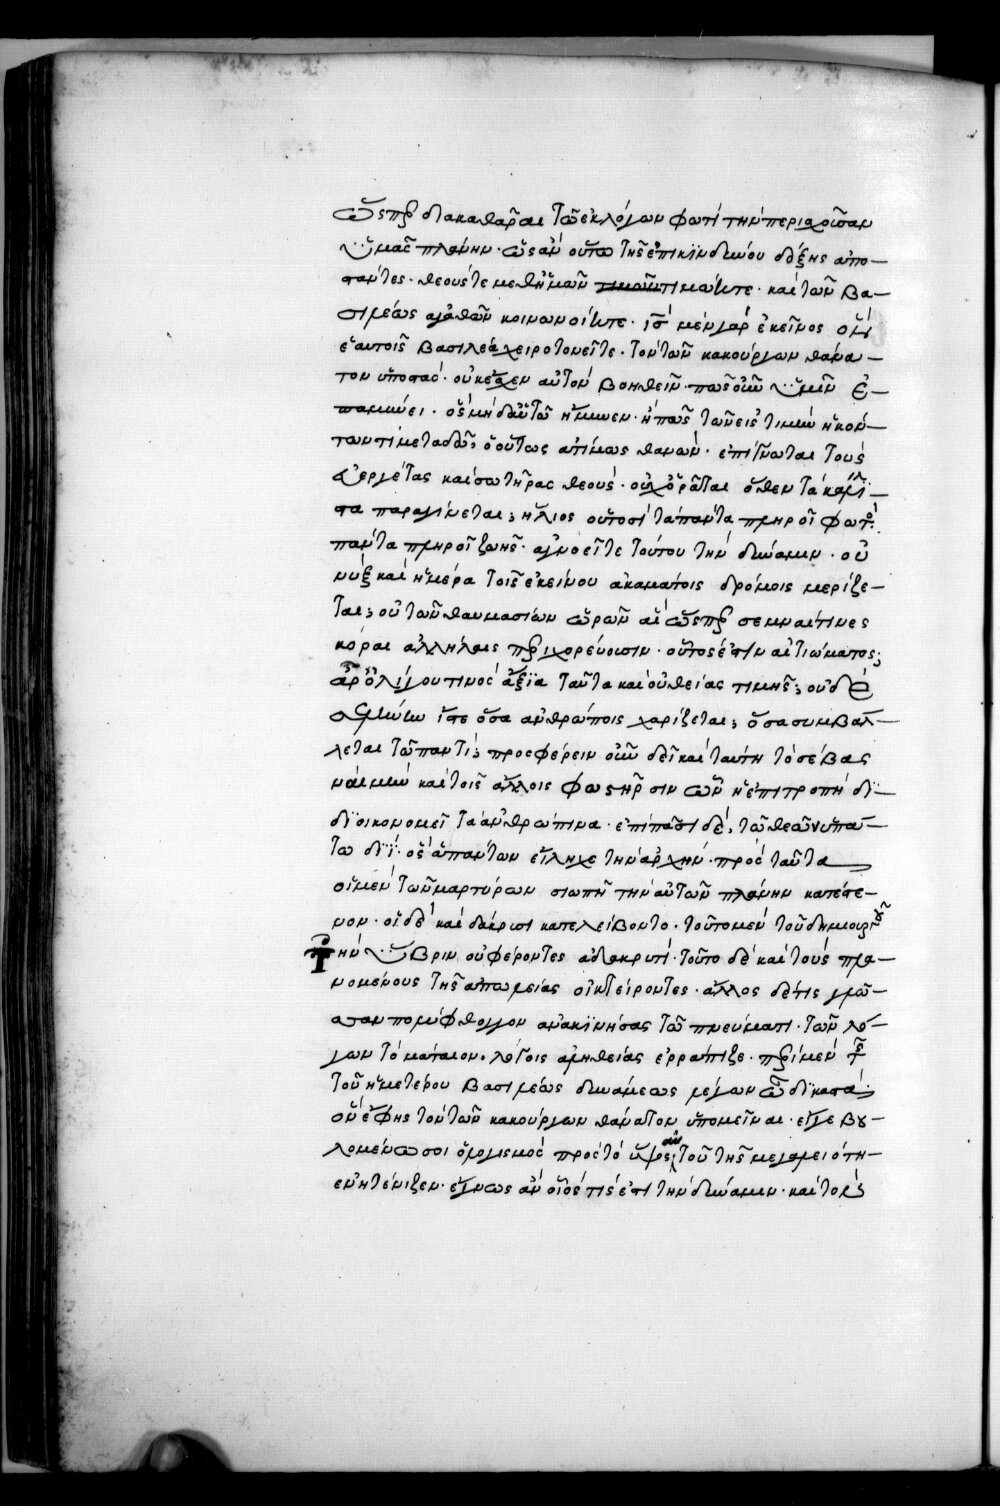 ὥσπερ διακαθᾶραι τῶ ἐκ λόγων φωτὶ τὴν περιέχουσαν
ὑμᾶς πλάνην· ὡς ἂν οὕτω τῆς ἐπικινδύνου δόξης ἀπο–
στάντες· θεούς τε μεθ' ἡμῶν τιμῶν τιμώητε· καὶ τῶν βα–
σιλέως ἀγαθῶν κοινωνοίητε· ἰ̅ς̅ μὲν γὰρ ἐκεῖνος ὃν
ἑαυτοῖς βασιλέα χειροτονεῖτε· τὸν τῶν κακούργων θάνα–
τον ὑποστάς· οὐκ ἔσχεν αὐτὸν βοηθεῖν· πῶς οὖν ὑμῖν ἐ–
παμύνει· ὃς μὴδ' αὑτῶ ἤμυνεν· ἢ πῶς τῶν εἰς τιμὴν ἡκόν–
των τί μεταδῶ; ὁ οὕτως ἀτίμως θανών· ἐπίγνωτε τοὺς
εὐεργέτας καὶ σωτῆρας θεούς· οὐχ ὁρᾶτε ὅθεν τὰ κάλλι–
στα παραγίνεται; ἥλιος οὑτοσὶ τὰ πάντα πληροῖ φωτός·
πάντα πληροῖ ζωῆς· ἀγνοεῖτε τούτου τὴν δύναμιν· οὐ
νὺξ καὶ ἡμέρα τοῖς ἐκείνου ἀκαμάτοις δρόμοις μερίζε–
ται; οὐ τῶν θαυμασίων ὡρῶν αἳ ὥσπερ σεμναί τινες
κόραι ἀλλήλαις περιχορεύουσιν· οὗτός ἐστιν αἰτιώματος;
ἆρ' ὀλίγου τινὸς ἄξια ταῦτα καὶ οὐ θείας τιμῆς; οὐδὲ
σελήνην ἴστε ὅσα ἀνθρώποις χαρίζεται; ὅσα συμβάλ–
λεται τῶ παντί; προσφέρειν οὖν δεῖ καὶ ταύτη τὸ σέβας
ναὶ μὴν καὶ τοῖς ἄλλοις φωστῆρσιν ὧν ἡ ἐπιτροπὴ δι–
διοικονομεῖ τὰ ἀνθρώπινα· ἐπὶ πᾶσι δέ, τῶ θεῶν ὑπά–
τω διΐ· ὃς ἁπάντων εἴληχε τὴν ἀρχήν· πρὸς ταῦτα
οἱ μὲν τῶν μαρτύρων σιωπῆ τὴν αὐτῶν πλάνην κατέστε–
νον· οἱ δὲ καὶ δάκρυσι κατελείβοντο· τοῦτο μὲν τοῦ δημιουργοῦ
τὴν ὕβριν οὐ φέροντες ἀδακρυτί· τοῦτο δὲ καὶ τοὺς πλα–
νομένους τῆς ἀπωλείας οἰκτείροντες· ἄλλος δέ τις γλῶ–
τταν πολύφθογγον ἀνακινήσας τῶ πνεύματι· τῶν λό–
γων τὸ μάταιον· λόγοις ἀληθείας ἐρράπιζε· περὶ μὲν τῆς
τοῦ ἡμετέρου βασιλέως δυνάμεως λέγων ὦ δικαστά·
ὃν ἔφης τὸν τῶν κακούργων θάνατον ὑπομεῖναι· εἴγε βου
λομένω σοι ὁ λογισμὸς πρὸς τὸ ὕψος αὐτοῦ τῆς μεγαλειότη–
εν ἠτένιζεν· ἔγνως ἂν οἷός τίς ἐστι τὴν δύναμιν· καὶ τοὺς